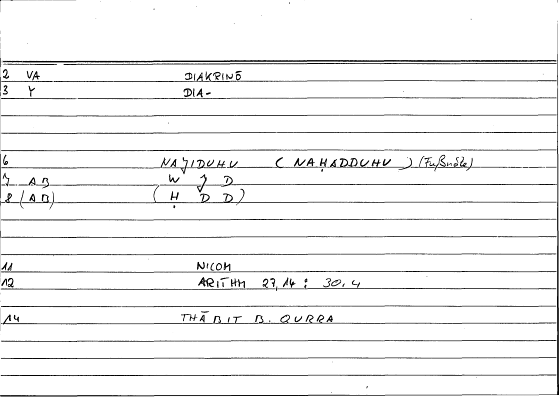 2 VA DIAKRINŌ
3 Y DIA-
6 NAǦIDUHU (NAḤADDUHU) (Fußnote)
7 AB W Ǧ D
8 (AB) (Ḥ D D)
11 NICOM
12 ARITHM 27,14 : 30.4
14 THĀBIT B. QURRA